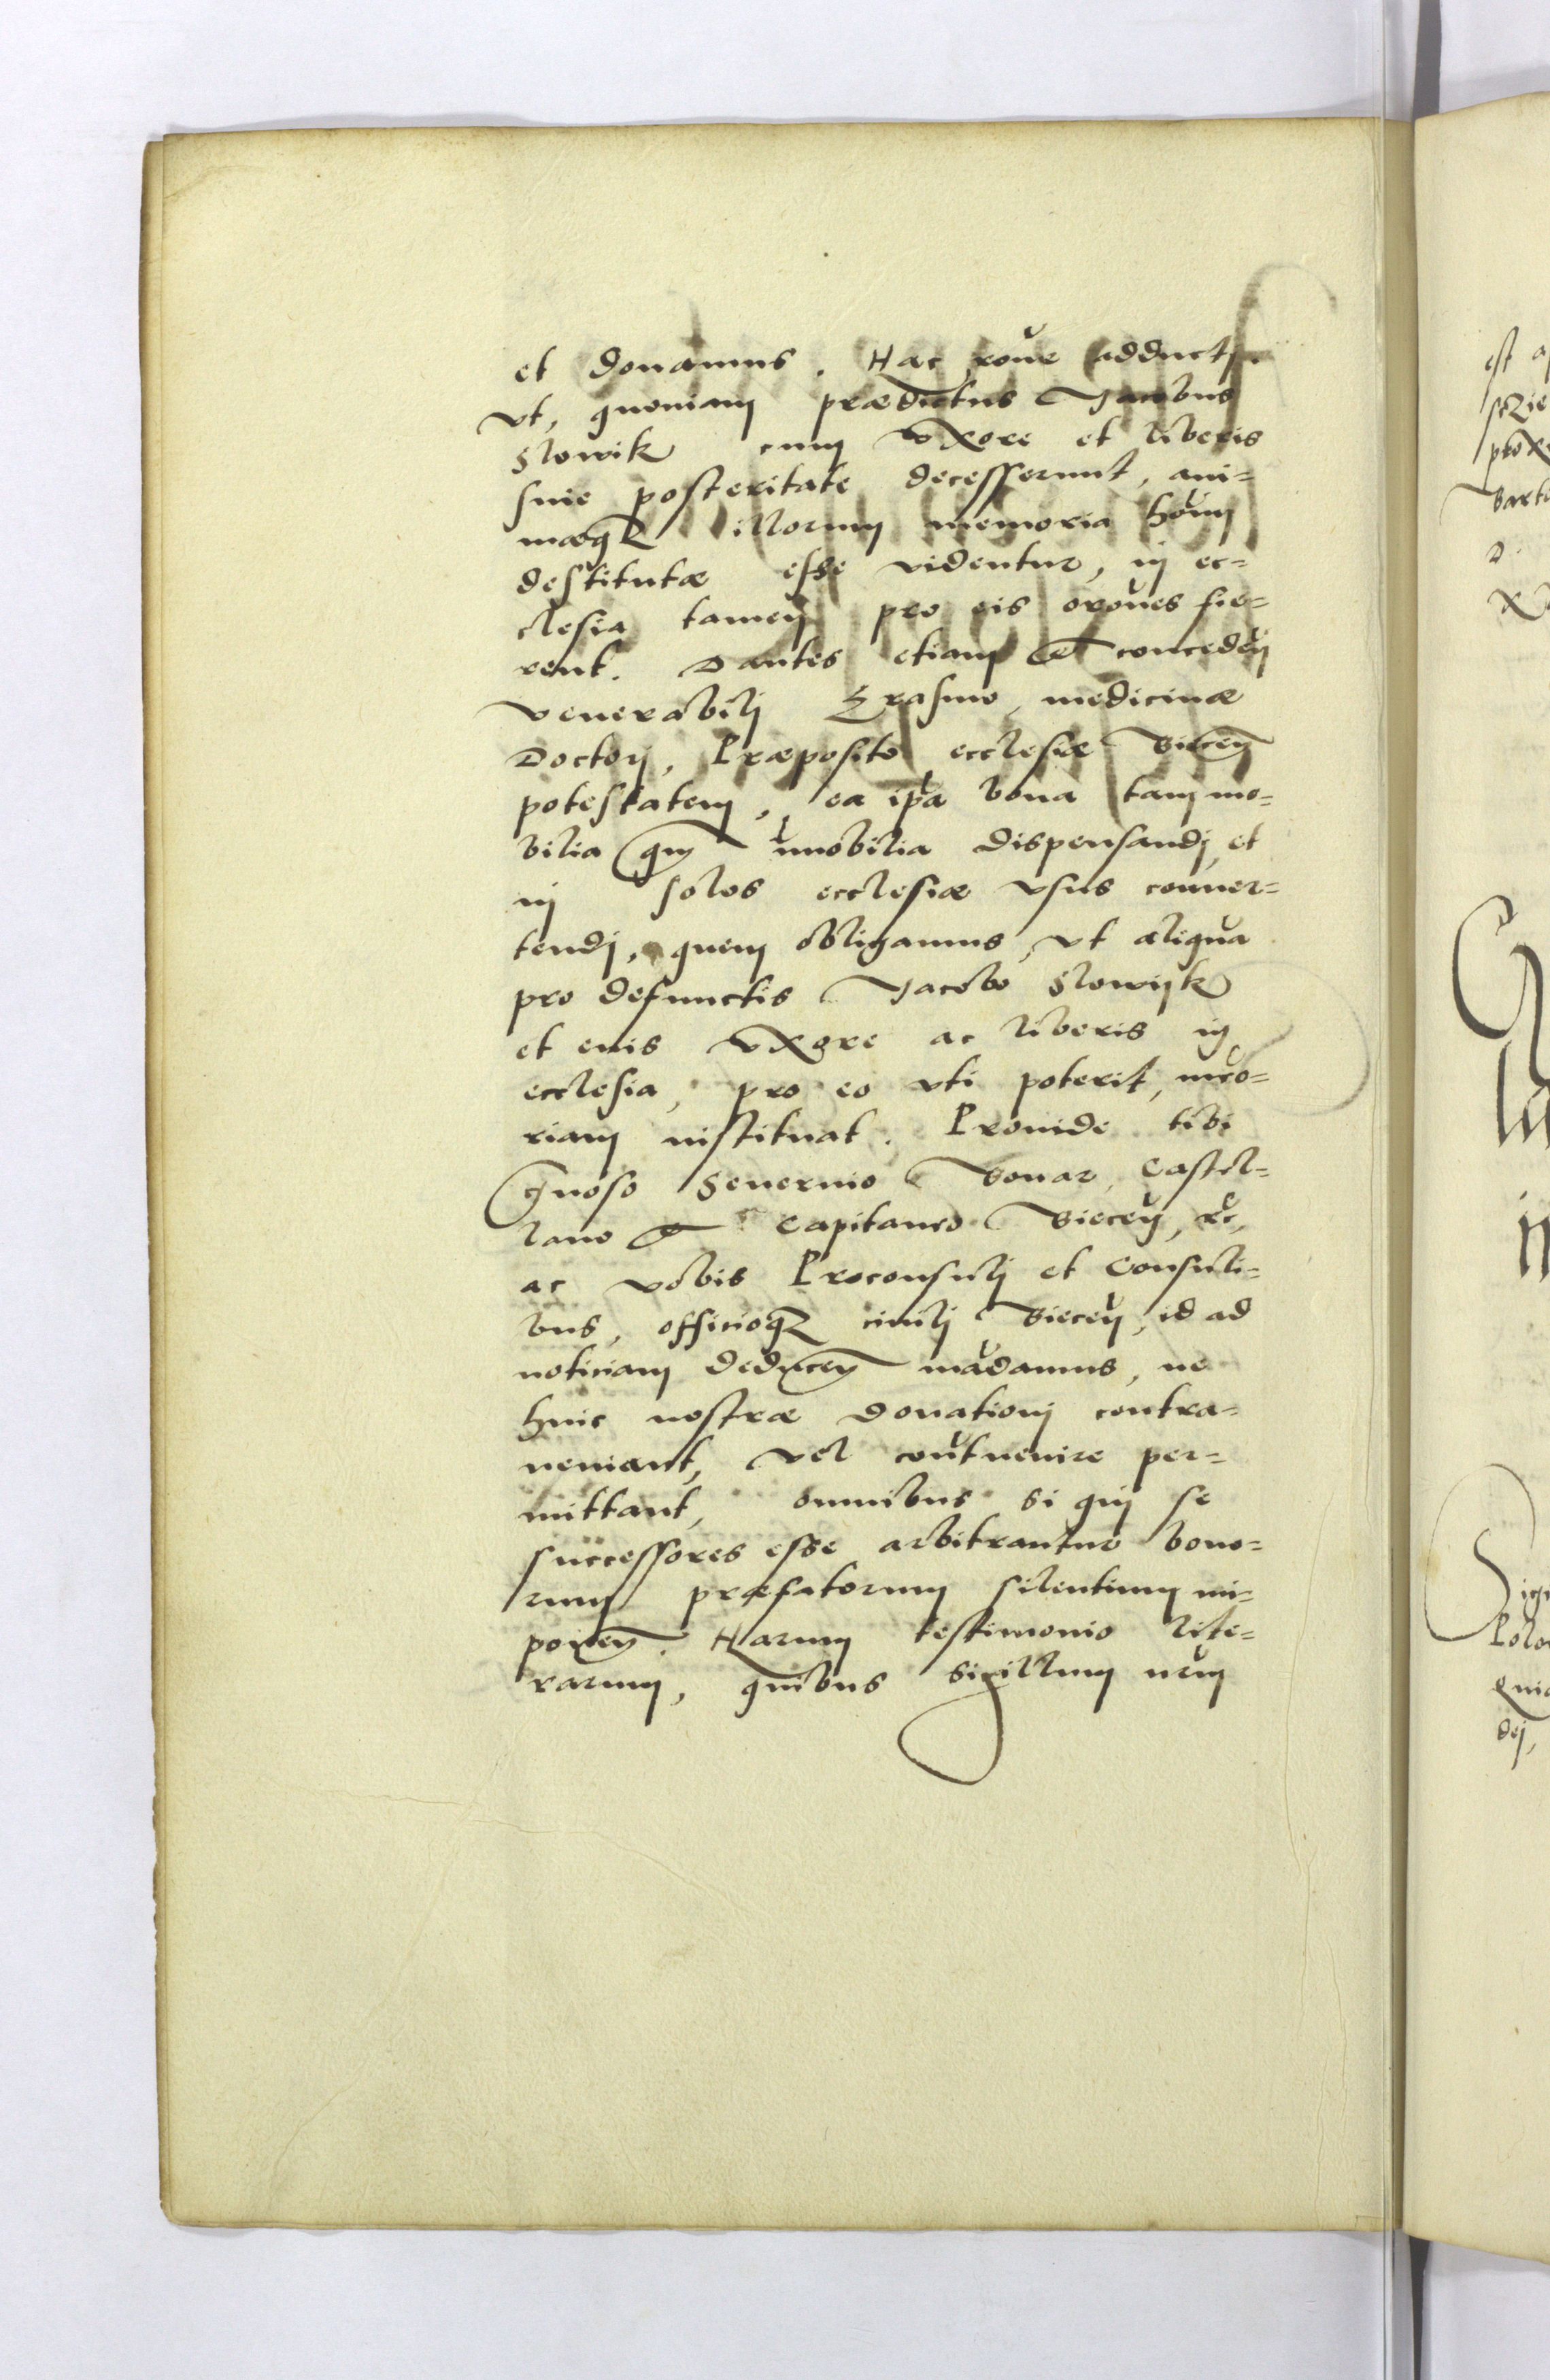 et donamus. Hac rõne adducti.
vt, quoniam prædictus Jacobus
Slowik cum vxore et liberis
sine posteritate decesserunt, ani-
mæq illorum memoria hoim
destitutæ esse videntur, in ec-
clesia tamen pro eis orõnes fie-
rent. Dantes etiam et conceden
venerabili Erasmo, medicinæ
Doctori, Præposito ecclesiæ Biecen
potestatem, ea ip̃a bona tam mo-
bilia qm̃ im̃obilia dispensandi, et
in solos ecclesiæ vsus conuer-
tendi, quem obligamus, vt aliqua
pro defunctis Jacobo Slowijk
et euis vxore ac liberis in
ecclesia, pro eo vti poterit, mẽo-
riam instituat. Prouide tibi
Gnoso Seuerino Bonar, Castel-
lano et Capitaneo Biecen, &c,
ac vobis Proconsuli et Consuli-
bus, officioq ciuili Biecen, id ad
noticiam deducen mãdamus, ne
huic nostræ donationi contra-
ueniant, vel cont̃uenire per-
mittant, omnibus si qui se
successores esse arbitrantur bono-
rum præfatorum silentium im-
ponen. Harum testimonio lite-
rarum, quibus sigillum nr̃um